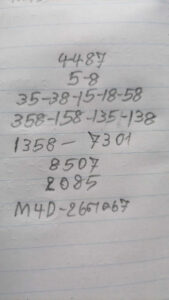 4487
5-8
35-38-15-18-58
358-158-135-138
1358- 7301
8507
2085
M4D-